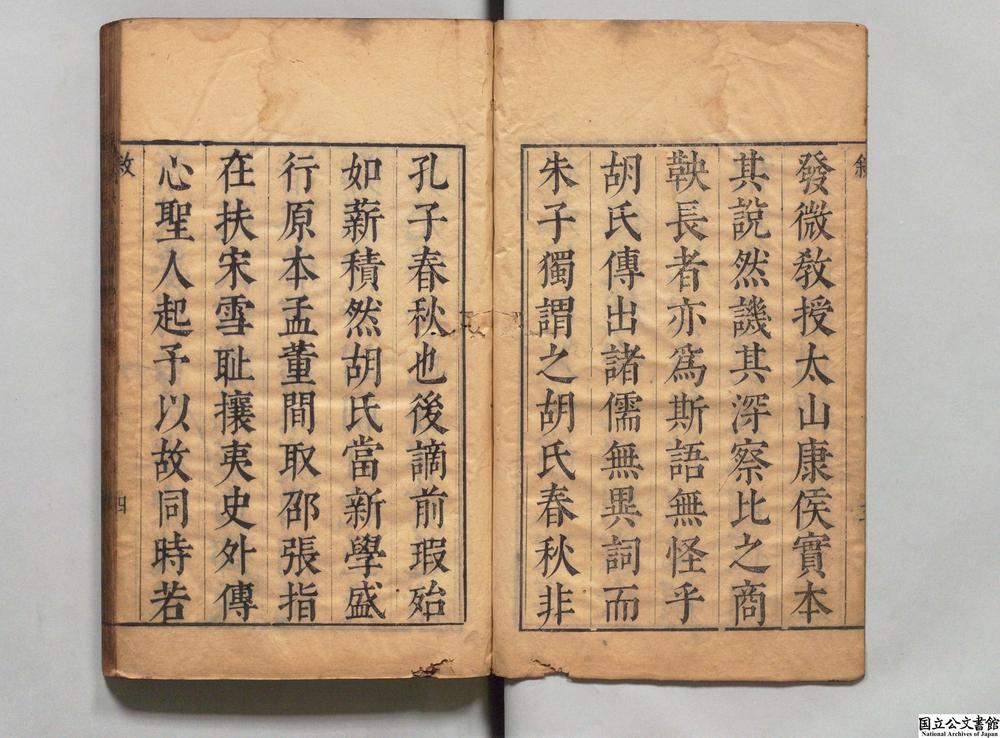 發微教授太山康侯實本
其說然譏其深察比之商
鞅長者亦爲斯語無怪乎
胡氏傳出諸儒無異詞而
朱子獨謂之胡氏春秋非
孔子春秋也後謫前瑕殆
如薪積然胡氏當新學盛
行原本孟董間取邵張指
在扶宋雪耻攘夷史外傳
心聖人起予以故同時若
四
国立公文書館
National Archives of Japan